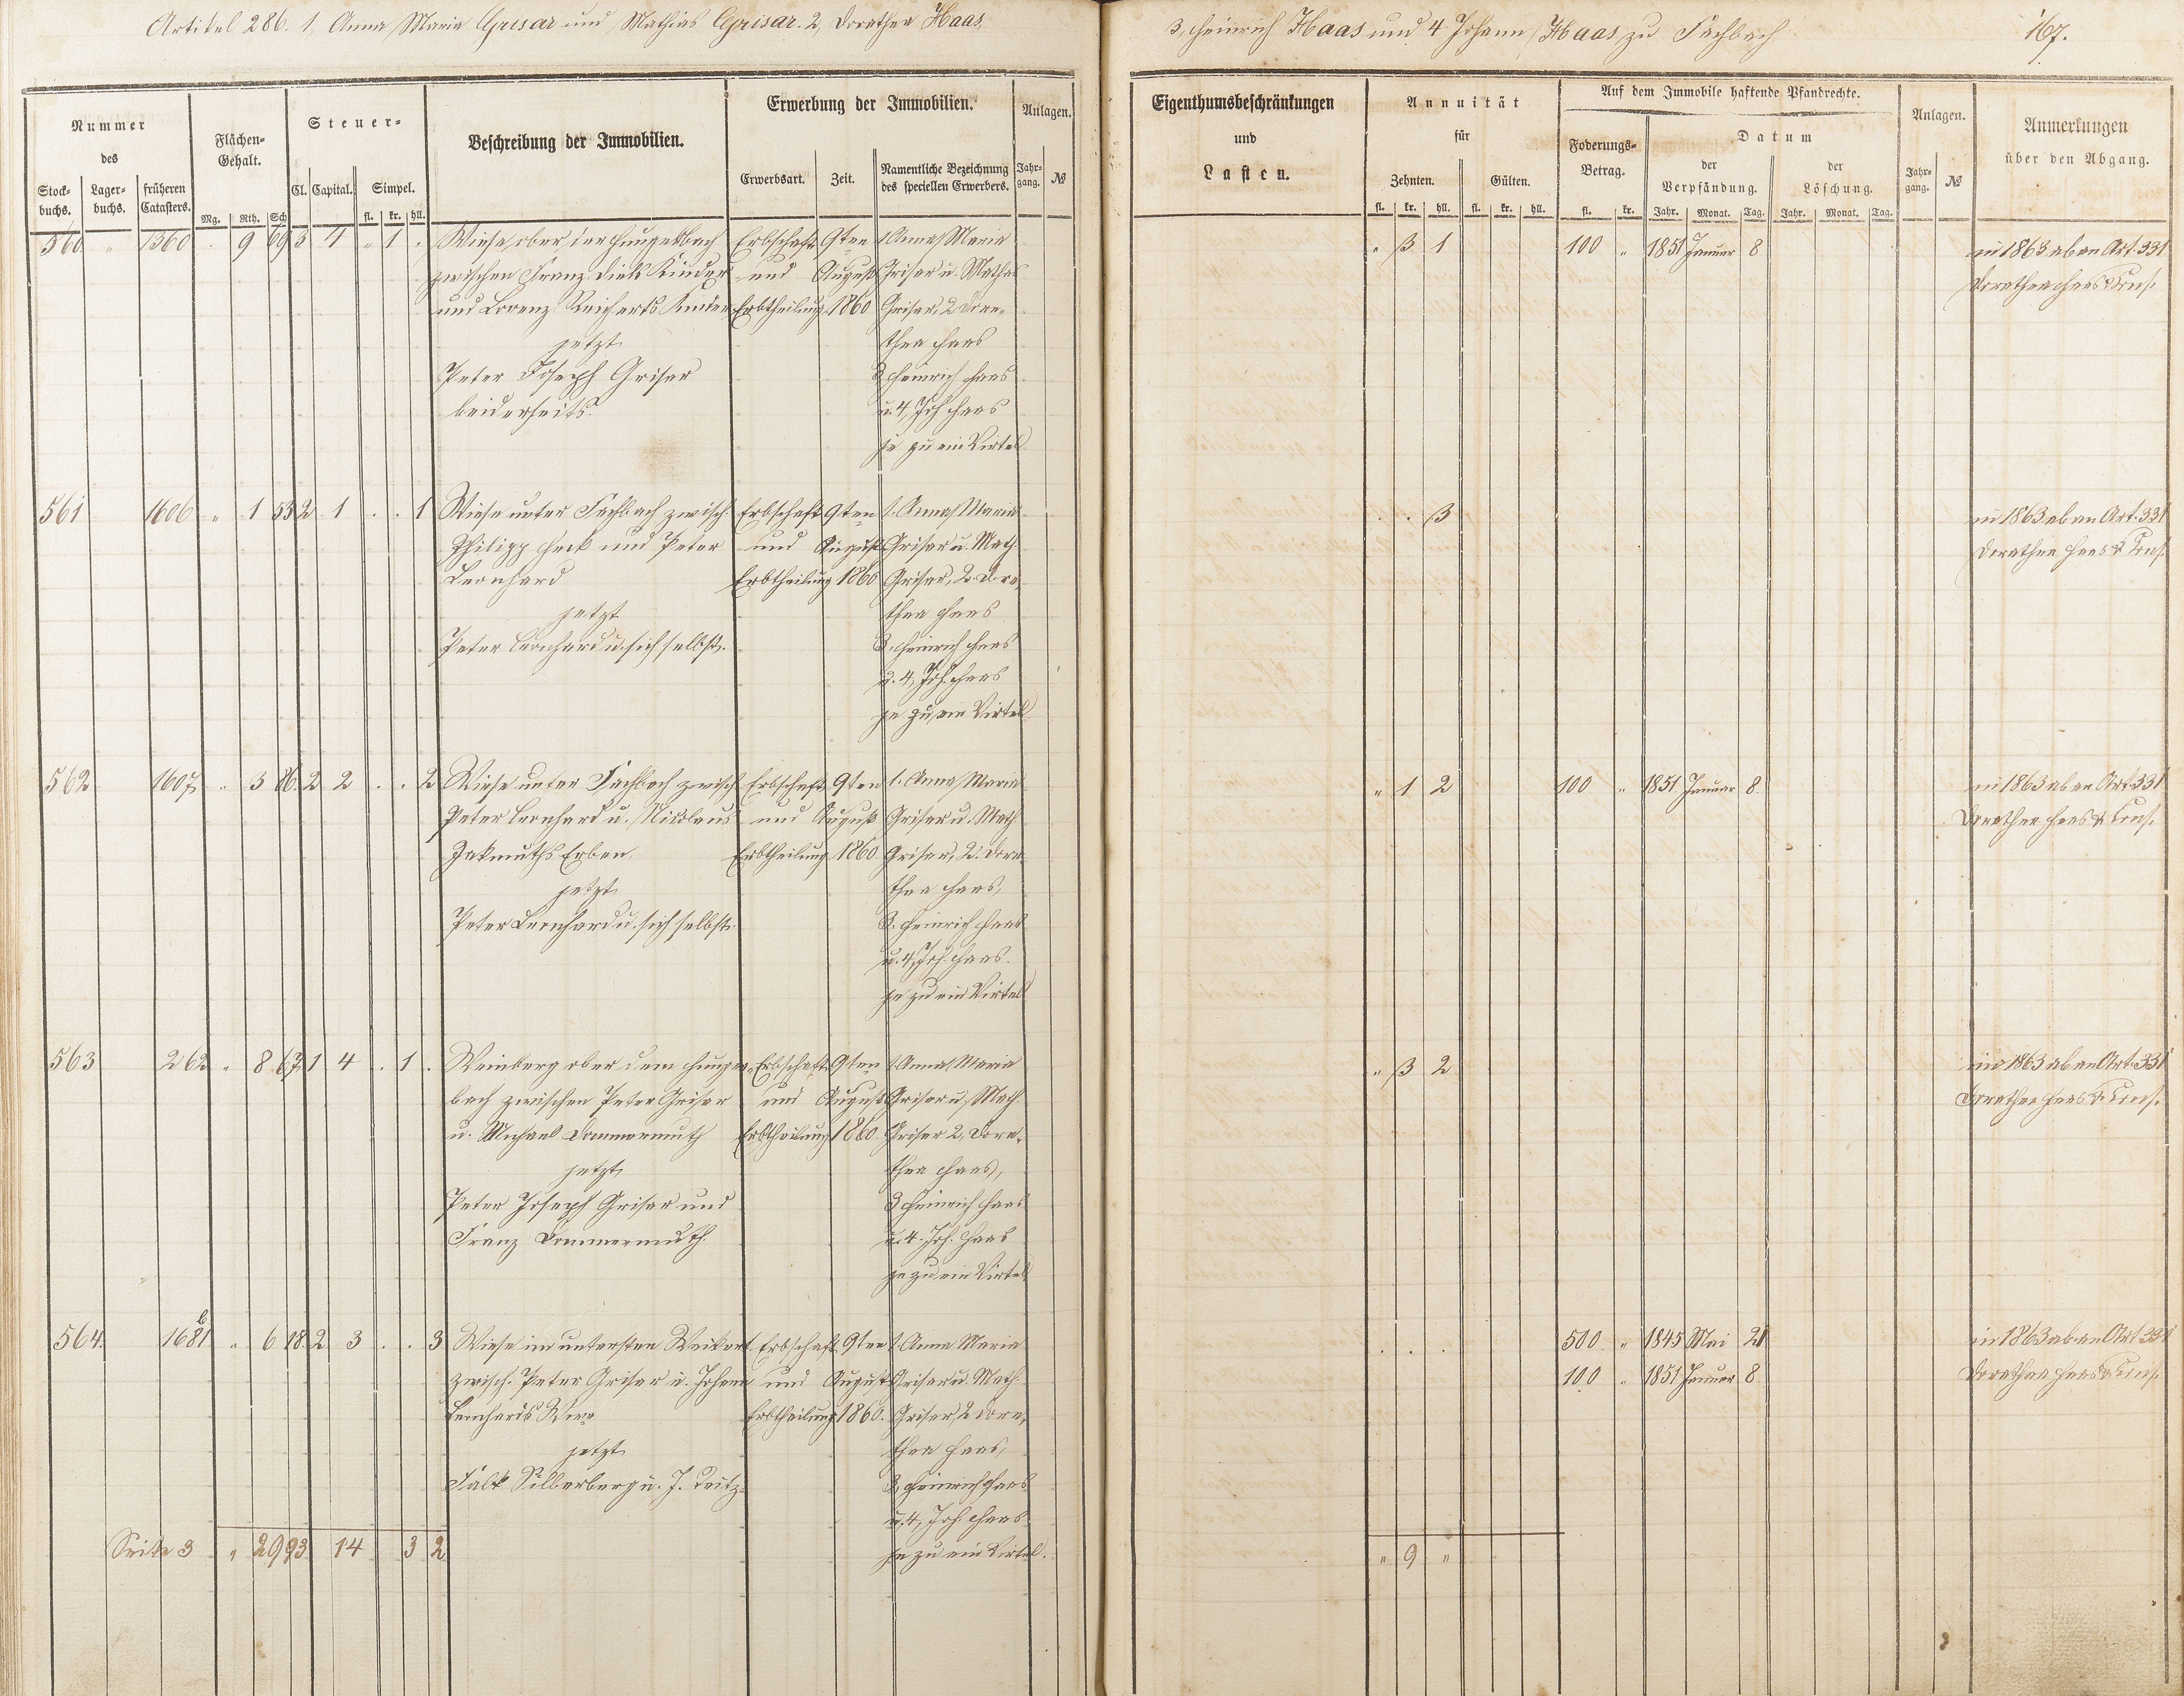 Artikel 286. 1, Anna Maria Grisar und Mathias Grisar. 2, Dorothea Haas,
3, Heinrich Haas und 4 Johann Haas zu Fachbach
167.
Nummer des
Stockbuchs.
Lagerbuchs.
früheren Catasters.
Flächen-Gehalt.
Mg. Rth. Sch
Steuer-
Cl. Capital. Simpel.
fl. kr. hll.
Beschreibung der Immobilien.
Erwerbung der Immobilien.
Erwerbsart. Zeit.
Namentliche Bezeichnung
des speciellen Erwerbers.
Anlagen.
Jahrgang. №
Eigenthumsbeschränkungen
und
Lasten.
Annuität
für
Zehnten. Gülten.
fl. kr. hll. fl. kr. hll.
Auf dem Immobile haftende Pfandrechte.
Foderungs-
Betrag.
fl. kr.
Datum
der Verpfändung.
Jahr. Monat. Tag.
der Löschung.
Jahr. Monat. Tag.
Anlagen.
Jahrgang. №
Anmerkungen
über den Abgang.
560 " 1360 . 9 69 3 4 " 1 . Wiese ober der Hungelbach Erbschaft 9ten 1 Anna Maria " 3 1 100 " 1851 Januar 8 in 1863 ab an Art. 331
zwischen Franz Diels Kinder und August Grisar u. Mathas Dorothea Haas & Cons.
und Lorenz Reicherts Kinder Erbtheilung 1860 Grisar, 2 Doro-
jetzt thea Haas
Peter Joseph Grisar 3 Heinrich Haas
beiderseits. u. 4, Joh Haas
je zu ein Virtel
561 1606 " 1 53 2 1 . . 1 Wiese unter Fachbach zwisch Erbschaft 9ten 1. Anna Maria . . 3 in 1863 ab an Art. 331
Philipp Heck und Peter und August Grisar u. Math. Dorothea Haas & Cons.
Leonhard Erbtheilung 1860 Grisar, 2. Doro-
jetzt thea Haas
Peter Leonhard u. sich selbst. 3. Heinrich Haas
u. 4, Joh. Haas
je zu ein Virtel
562 1607 " 3 86. 2 2 . . 2 Wiese unter Fachbach zwisch Erbschaft 9ten 1. Anna Maria " 1 2 100 " 1851 Januar 8 in 1863 ab an Art. 331
Peter Leonhard u. Nicolaus und August Grisar u. Math Dorothea Haas & Cons.
Jakmuths Erben. Erbtheilung 1860. Grisar, 2. Doro-
jetzt thea Haas,
Peter Leonhard u. sich selbst. 3. Heinrich Haas
u. 4, Joh. Haas.
je zu ein Virtel
563 262 " 8 67 1 4 . 1 . Weinberg ober dem Hungel- Erbschaft 9ten 1 Anna Maria " 3 2 in 1863 ab an Art. 331
bach zwischen Peter Grisar und August Grisar u. Math. Dorothea Haas & Cons.
u. Michael Dommermuth Erbtheilung 1860. Grisar 2, Doro-
jetzt thea Haas,
Peter Joseph Grisar und 3 Heinrich Haas
Franz Dommermuth. u. 4. Joh. Haas
je zu ein Virtel
564. 1681 b " 6 18. 2 3 . . 3 Wiese im untersten Weikert Erbschaft 9ten 1. Anna Maria . . . 500 " 1845 Mai 21 in 1863 ab an Art 331
zwisch. Peter Grisar u. Johann und August Grisar u. Math. 100 " 1851 Januar 8 Dorothea Haas & Cons.
Leonhards Wwe Erbtheilung 1860. Grisar, 2 Doro-
jetzt thea Haas,
Falk Silberberg u. J. 3, Heinrich Haas
u. 4, Joh. Haas
je zu ein Virtel.
Seite 3 " 29 93 14 3 2 " 9 "